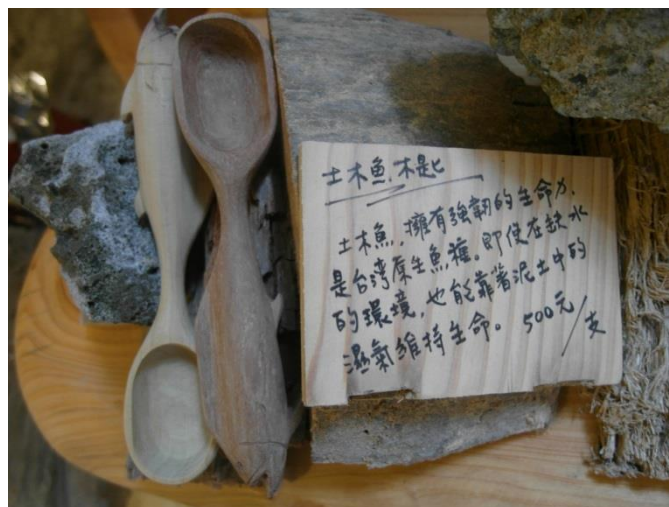 土木魚.木匙
土木魚，擁有強韌的生命力，
是台湾原生魚種。即使在缺水
的環境，也能靠著泥土中的
濕氣維持生命。 500元/支